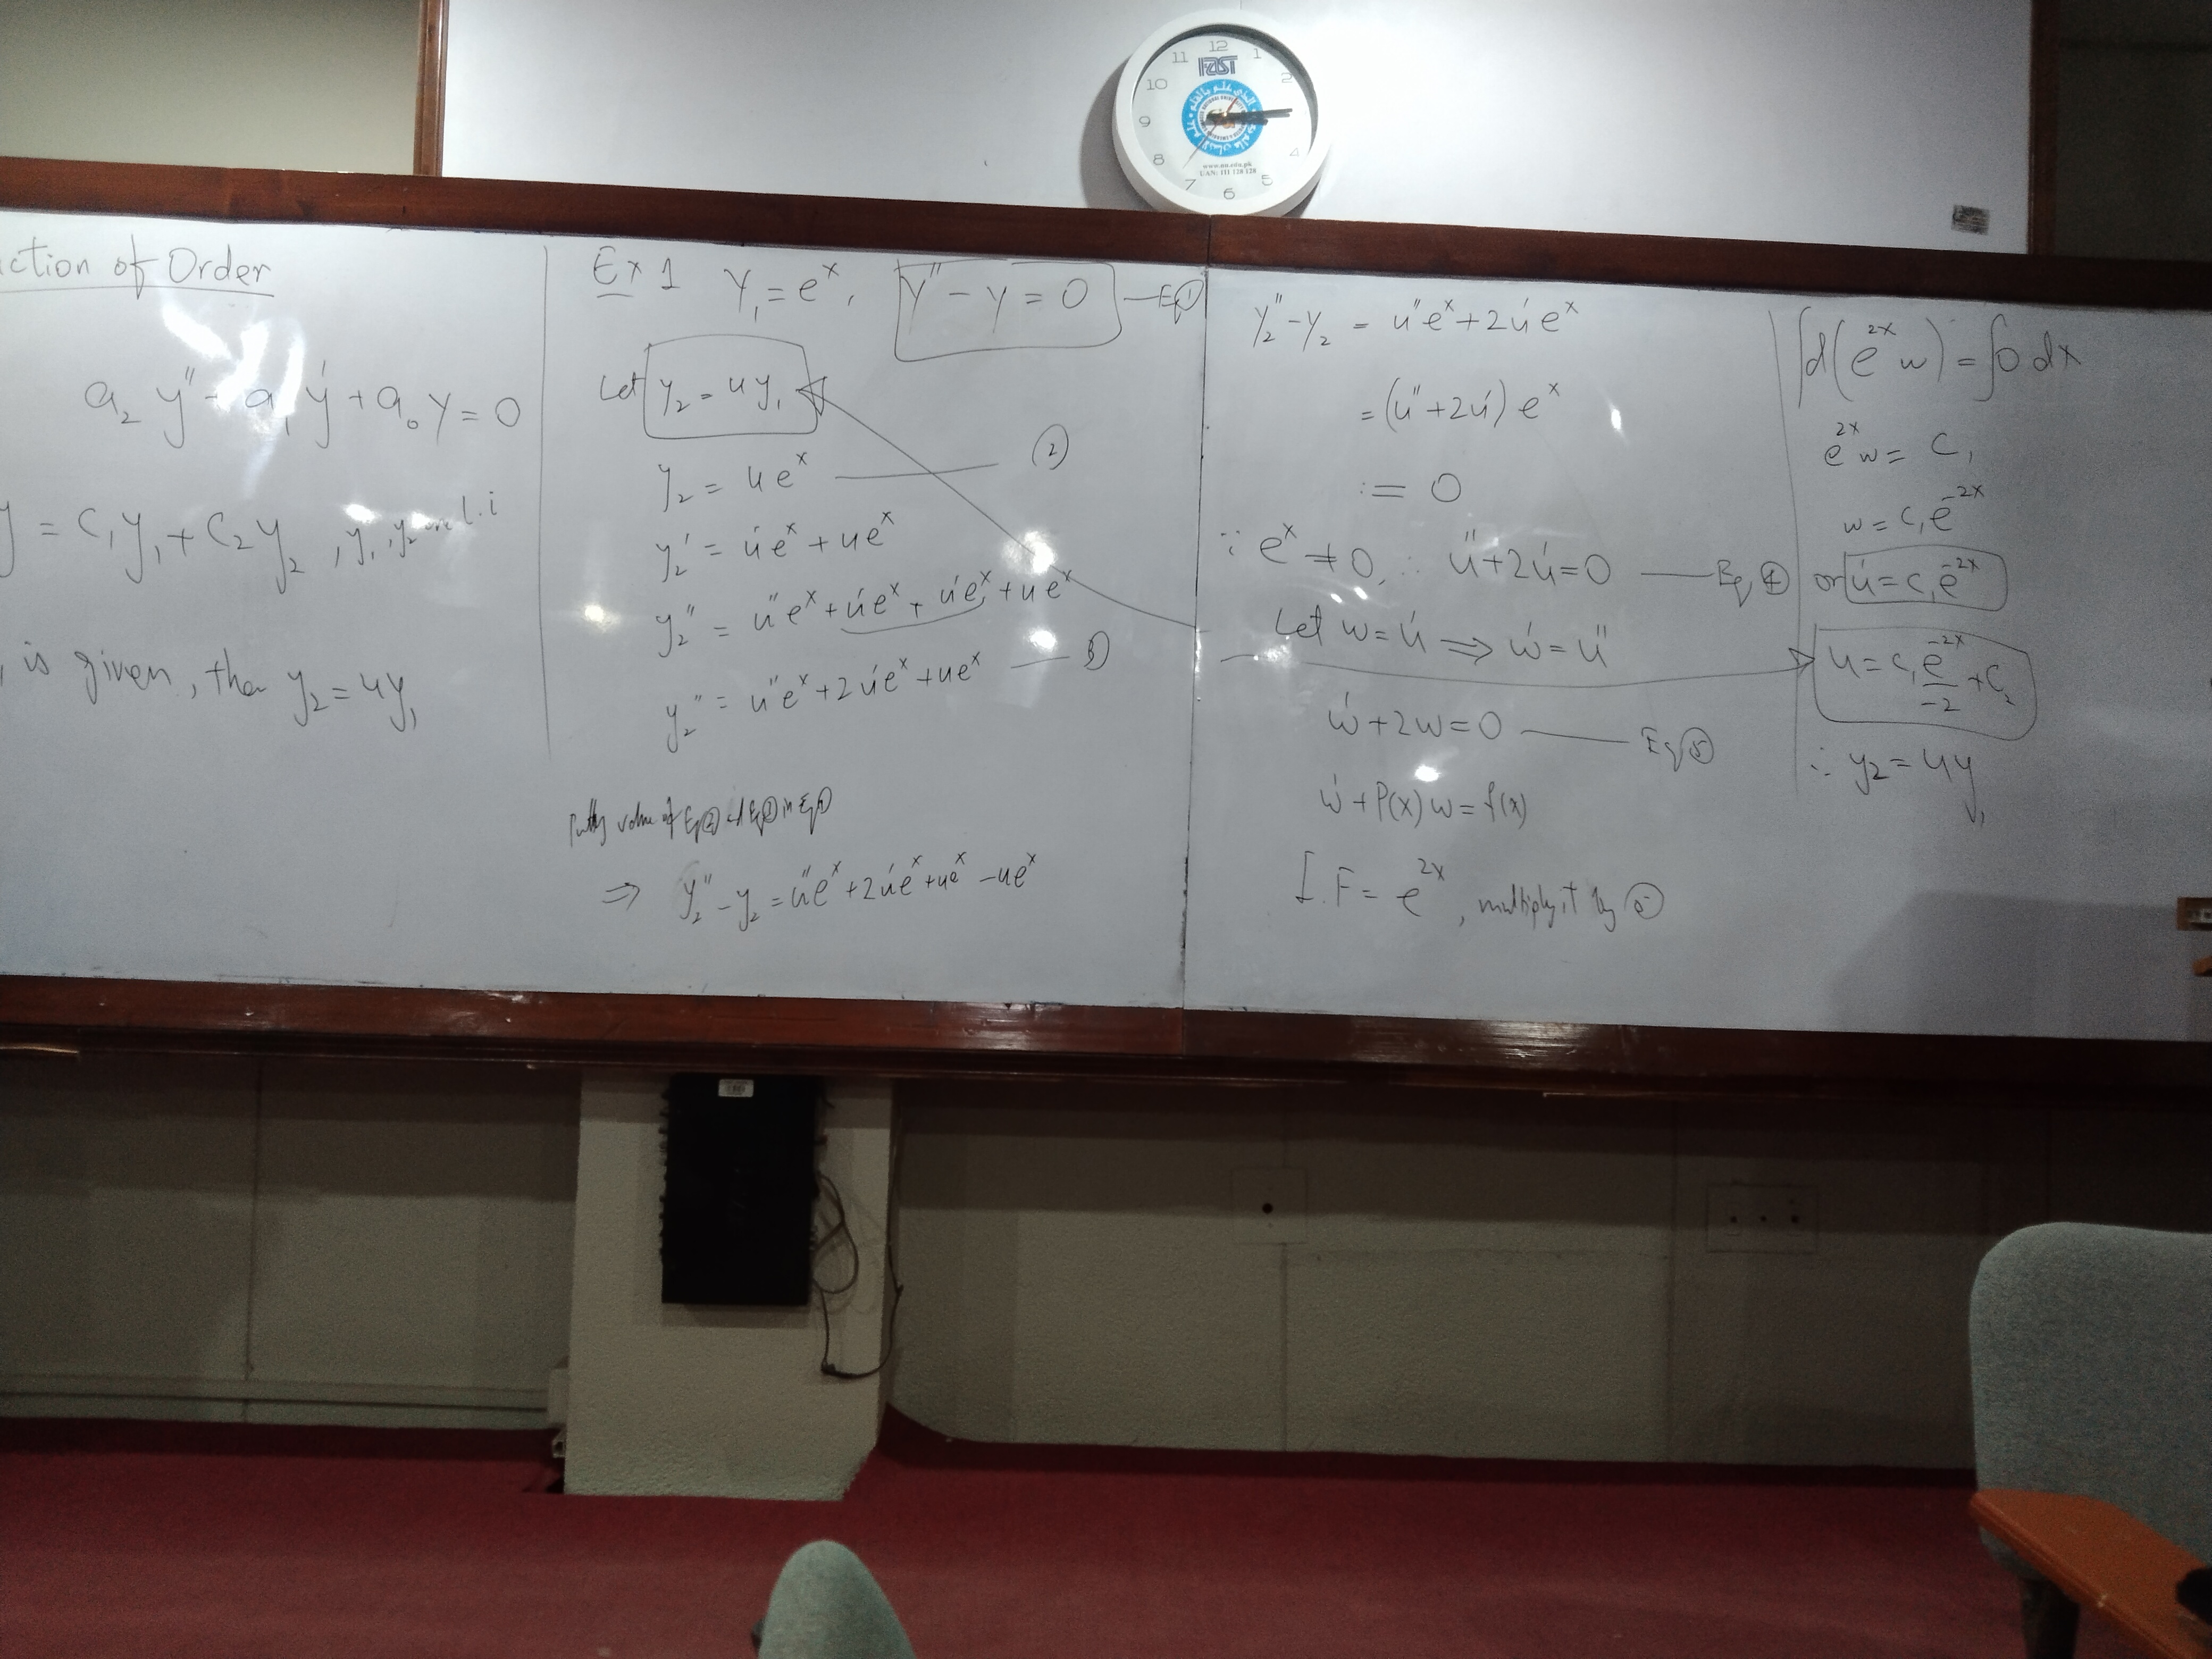 12
11 1
10 2
9
8 4
7 5
6
FAST
www.nu.edu.pk
UAN: 111 128 128
ction of Order
a₂ y'' + a₁ y' + a₀ y = 0
y = c₁y₁ + c₂y₂ , y₁, y₂ are l.i
is given, then y₂ = uy₁
Ex 1 y₁ = eˣ, y'' - y = 0 — Eq ①
Let y₂ = uy₁
y₂ = ueˣ — ②
y₂' = u'eˣ + ueˣ
y₂'' = u''eˣ + u'eˣ + u'eˣ + ueˣ
y₂'' = u''eˣ + 2u'eˣ + ueˣ — ③
value of Eq ② Eq ③ in Eq ①
⇒ y₂'' - y₂ = u''eˣ + 2u'eˣ + ueˣ - ueˣ
y₂'' - y₂ = u''eˣ + 2u'eˣ
= (u'' + 2u') eˣ
:= 0
∵ eˣ ≠ 0, ∴ u'' + 2u' = 0 — Eq ④
Let w = u' ⇒ w' = u''
w' + 2w = 0 — Eq ⑤
w' + P(x)w = f(x)
I.F = e²ˣ, multiply it by ⑤
∫d(e²ˣ w) = ∫0 dx
e²ˣ w = c₁
w = c₁e⁻²ˣ
or u' = c₁e⁻²ˣ
u = c₁ e⁻²ˣ/-2 + c₂
∴ y₂ = uy₁